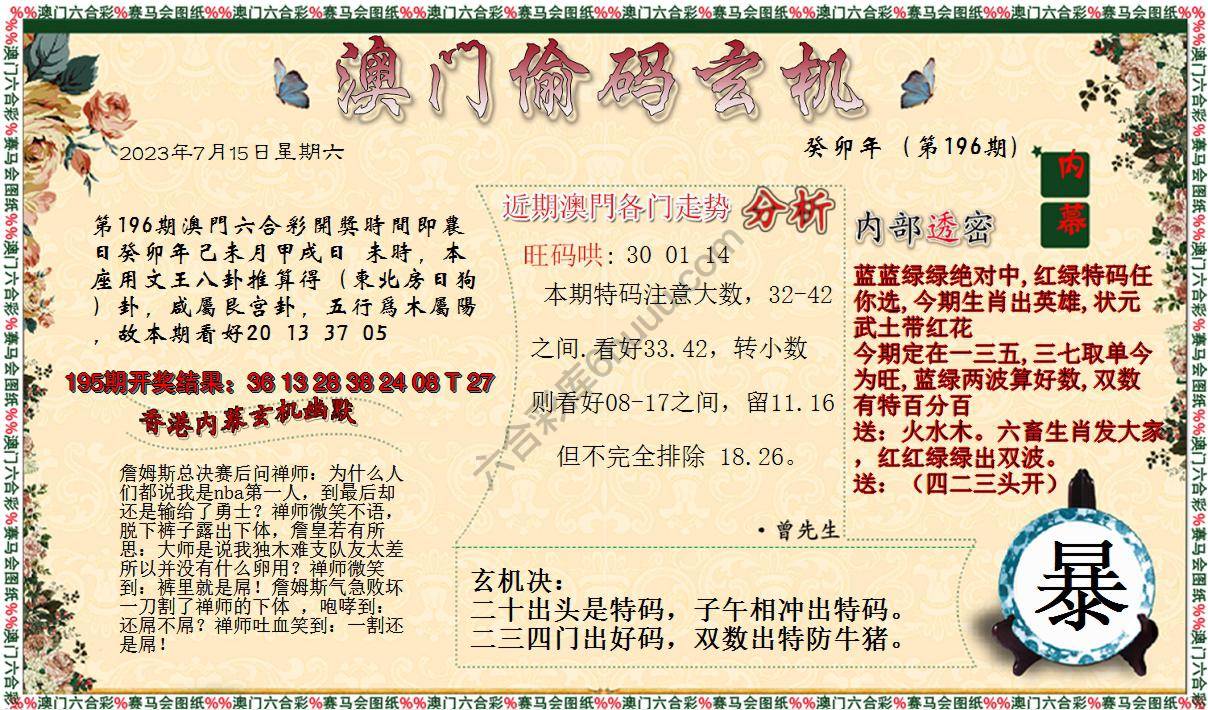 %%澳门六合彩%赛马会图纸%%澳门六合彩%赛马会图纸%%澳门六合彩%赛马会图纸%%澳门六合彩%赛马会图纸%%澳门六合彩%赛马会图纸%%澳门六合彩%赛马会图纸%%
澳门偷码玄机
2023年7月15日星期六
癸卯年（第196期）
第196期澳門六合彩開獎時間即農
日癸卯年己未月甲戌日 未時，本
座用文王八卦推算得（東北房日狗
）卦，咸屬艮宫卦，五行爲木屬陽
，故本期看好20 13 37 05
195期开奖结果：36 13 28 38 24 08 T 27
香港内幕玄机幽默
詹姆斯总决赛后问禅师：为什么人
们都说我是nba第一人，到最后却
还是输给了勇士？禅师微笑不语，
脱下裤子露出下体，詹皇若有所
思：大师是说我独木难支队友太差
所以并没有什么卵用？禅师微笑
到：裤里就是屌！詹姆斯气急败坏
一刀割了禅师的下体 ，咆哮到：
还屌不屌？禅师吐血笑到：一割还
是屌！
近期澳門各门走势 分析
旺码哄：30 01 14
本期特码注意大数，32-42
之间.看好33.42，转小数
则看好08-17之间，留11.16
但不完全排除 18.26。
·曾先生
内部透密
内
幕
蓝蓝绿绿绝对中,红绿特码任
你选,今期生肖出英雄,状元
武土带红花
今期定在一三五,三七取单今
为旺,蓝绿两波算好数,双数
有特百分百
送：火水木。六畜生肖发大家
，红红绿绿出双波。
送：（四二三头开）
玄机决：
二十出头是特码，子午相冲出特码。
二三四门出好码，双数出特防牛猪。
暴